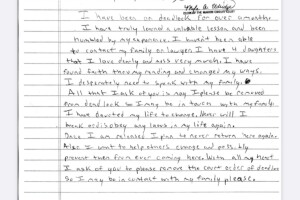 I have been on deadlock for over a month.
I have truly learned a valuable lesson and been
humbled by my experience. I haven't been able
to contact my family or lawyer. I have 4 daughters
that I love dearly and miss very much. I have
found faith through reading and changed my ways.
I desperately need to speak with my family.
All that I ask of you is may I please be removed
from dead lock so I may be in touch with my family.
I have exerted my life to change. Never will I
break or disobey any laws in my life again.
Once I am released I plan to never return here again.
Also I want to help others change and possibly
prevent them from ever coming here. With all my heart
I ask of you to please remove the court order of deadlock
so I may be in contact with my family please.